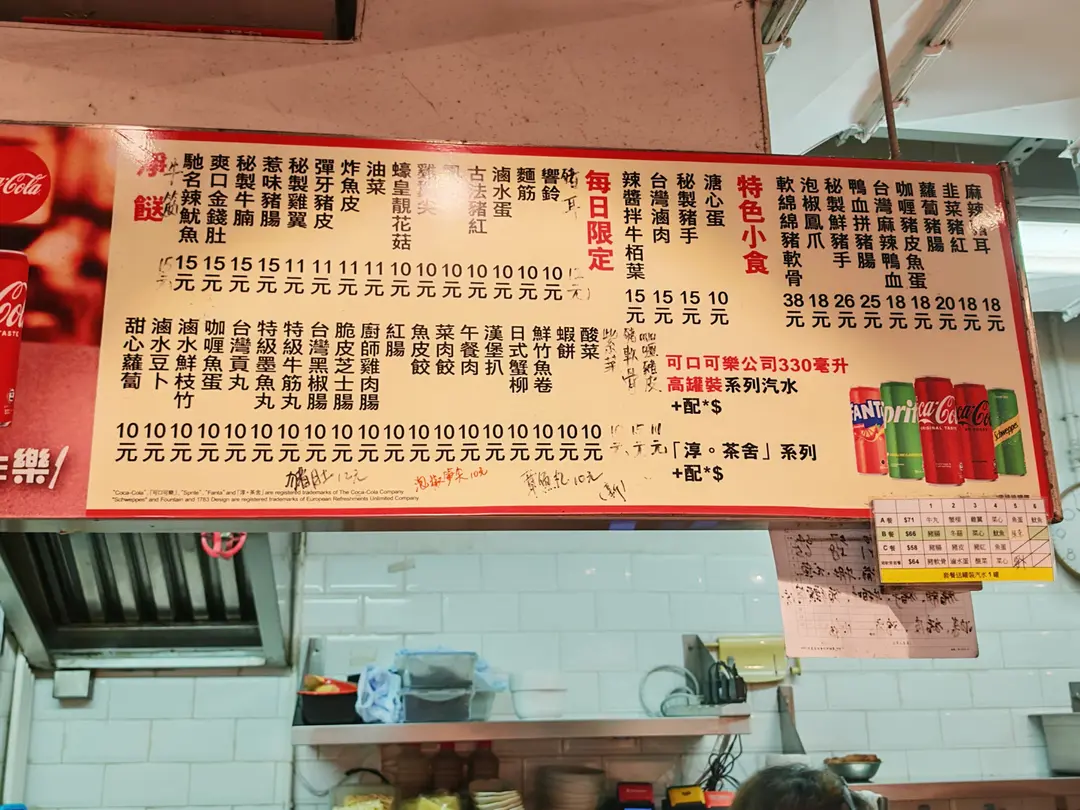 Coca-Cola
淨餸
牛筋 15元
馳名辣魷魚 15元
爽口金錢肚 15元
秘製牛腩 15元
惹味豬腸 15元
秘製雞翼 11元
彈牙豬皮 11元
炸魚皮 11元
油菜 11元
蠔皇靚花菇 10元
10元
10元
古法豬紅 10元
滷水蛋 10元
麵筋 10元
響鈴 10元
豬耳
每日限定
辣醬拌牛栢葉 15元
台灣滷肉 15元
秘製豬手 15元
溏心蛋 10元
特色小食
軟綿綿豬軟骨 38元
泡椒鳳爪 18元
秘製鮮豬手 26元
鴨血拼豬腸 25元
台灣麻辣鴨血 18元
咖喱豬皮魚蛋 18元
蘿蔔豬腸 20元
韭菜豬紅 18元
麻辣豬耳 18元
甜心蘿蔔 10元
滷水豆卜 10元
滷水鮮枝竹 10元
咖喱魚蛋 10元
台灣貢丸 10元
特級墨魚丸 10元
特級牛筋丸 10元
台灣黑椒腸 10元
脆皮芝士腸 10元
廚師雞肉腸 10元
紅腸 10元
魚皮餃 10元
菜肉餃 10元
午餐肉 10元
漢堡扒 10元
日式蟹柳 10元
鮮竹魚卷 10元
蝦餅 10元
酸菜 10元
豬軟骨 15元
可口可樂公司330毫升
高罐裝系列汽水
+配*$
「淳。茶舍」系列
+配*$
"Coca-Cola", "可口可樂", "Sprite", "Fanta" and "淳。茶舍" are registered trademarks of The Coca-Cola Company
"Schweppes" and Fountain and 1783 Design are registered trademarks of European Refreshments Unlimited Company
1 2 3 4 5 6
A 餐 $71 牛丸 蟹柳 雞翼 菜心 魚蛋 魷魚
B 餐 $66 豬腸 冬菇 菜心 魷魚
C 餐 $58 豬腸 豬皮 豬紅 魚蛋
$64 豬軟骨 滷水蛋 酸菜 菜心